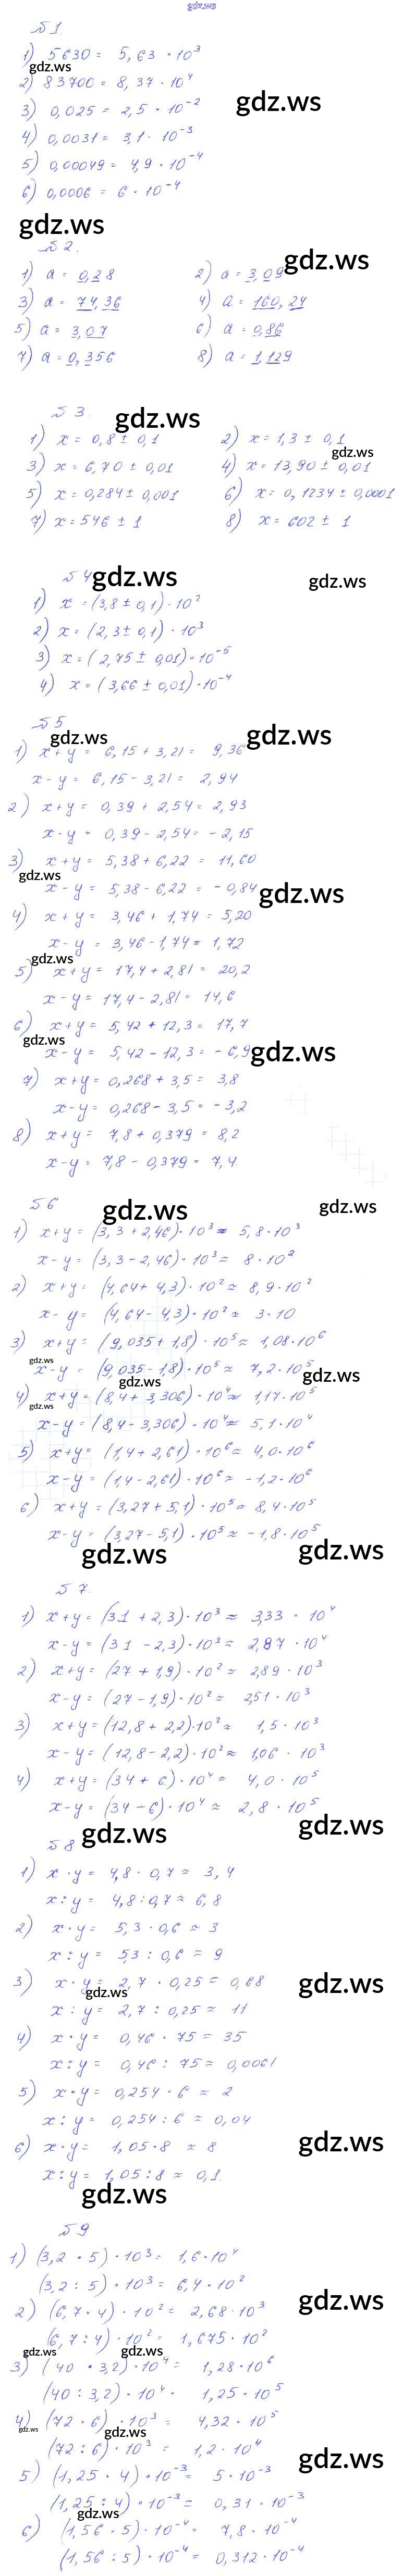 gdz.ws
№1.
1) 5630 = 5,63 · 10³
gdz.ws
2) 83700 = 8,37 · 10⁴
gdz.ws
3) 0,025 = 2,5 · 10⁻²
4) 0,0031 = 3,1 · 10⁻³
5) 0,00049 = 4,9 · 10⁻⁴
6) 0,0006 = 6 · 10⁻⁴
gdz.ws
№2.
gdz.ws
1) a = 0,28 2) a = 3,09
3) a = 74,36 4) a = 160,24
5) a = 3,07 6) a = 0,86
7) a = 0,356 8) a = 1,129
№3.
gdz.ws
1) x = 0,8 ± 0,1 2) x = 1,3 ± 0,1
gdz.ws
3) x = 6,70 ± 0,01 4) x = 13,90 ± 0,01
5) x = 0,284 ± 0,001 6) x = 0,1234 ± 0,0001
7) x = 546 ± 1 8) x = 602 ± 1
№4
gdz.ws gdz.ws
1) x = (3,8 ± 0,1) · 10²
2) x = (2,3 ± 0,1) · 10³
3) x = (2,75 ± 0,01) · 10⁻⁵
4) x = (3,66 ± 0,01) · 10⁻⁴
№5
gdz.ws gdz.ws
1) x + y = 6,15 + 3,21 = 9,36
x - y = 6,15 - 3,21 = 2,94
2) x + y = 0,39 + 2,54 = 2,93
x - y = 0,39 - 2,54 = -2,15
3) x + y = 5,38 + 6,22 = 11,60
gdz.ws
x - y = 5,38 - 6,22 = -0,84
gdz.ws
4) x + y = 3,46 + 1,74 = 5,20
x - y = 3,46 - 1,74 = 1,72
gdz.ws
5) x + y = 17,4 + 2,81 = 20,2
x - y = 17,4 - 2,81 = 14,6
6) x + y = 5,42 + 12,3 = 17,7
gdz.ws
x - y = 5,42 - 12,3 = -6,9
gdz.ws
7) x + y = 0,268 + 3,5 = 3,8
x - y = 0,268 - 3,5 = -3,2
8) x + y = 7,8 + 0,379 = 8,2
x - y = 7,8 - 0,379 = 7,4
№6
gdz.ws gdz.ws
1) x + y = (3,3 + 2,46) · 10³ ≈ 5,8 · 10³
x - y = (3,3 - 2,46) · 10³ ≈ 8 · 10²
2) x + y = (4,64 + 4,3) · 10² ≈ 8,9 · 10²
x - y = (4,64 - 4,3) · 10² ≈ 3 · 10
3) x + y = (9,035 + 1,8) · 10⁵ ≈ 1,08 · 10⁶
gdz.ws
x - y = (9,035 - 1,8) · 10⁵ ≈ 7,2 · 10⁵
gdz.ws gdz.ws
4) x + y = (8,4 + 3,306) · 10⁴ ≈ 1,17 · 10⁵
gdz.ws
x - y = (8,4 - 3,306) · 10⁴ ≈ 5,1 · 10⁴
5) x + y = (1,4 + 2,61) · 10⁶ ≈ 4,0 · 10⁶
x - y = (1,4 - 2,61) · 10⁶ ≈ -1,2 · 10⁶
6) x + y = (3,27 + 5,1) · 10⁵ ≈ 8,4 · 10⁵
x - y = (3,27 - 5,1) · 10⁵ ≈ -1,8 · 10⁵
gdz.ws gdz.ws
№7.
1) x + y = (31 + 2,3) · 10³ ≈ 3,33 · 10⁴
x - y = (31 - 2,3) · 10³ ≈ 2,87 · 10⁴
2) x + y = (27 + 1,9) · 10² ≈ 2,89 · 10³
x - y = (27 - 1,9) · 10² ≈ 2,51 · 10³
3) x + y = (12,8 + 2,2) · 10² ≈ 1,5 · 10³
x - y = (12,8 - 2,2) · 10² ≈ 1,06 · 10³
4) x + y = (34 + 6) · 10⁴ ≈ 4,0 · 10⁵
x - y = (34 - 6) · 10⁴ ≈ 2,8 · 10⁵
gdz.ws gdz.ws
№8
1) x · y = 4,8 · 0,7 ≈ 3,4
x : y = 4,8 : 0,7 ≈ 6,8
2) x · y = 5,3 · 0,6 ≈ 3
x : y = 5,3 : 0,6 ≈ 9
3) x · y = 2,7 · 0,25 = 0,68
gdz.ws gdz.ws
x : y = 2,7 : 0,25 ≈ 11
4) x · y = 0,46 · 75 = 35
x : y = 0,46 : 75 ≈ 0,0061
5) x · y = 0,254 · 6 ≈ 2
x : y = 0,254 : 6 ≈ 0,04
6) x · y = 1,05 · 8 ≈ 8
gdz.ws
x : y = 1,05 : 8 ≈ 0,1
gdz.ws
№9
1) (3,2 · 5) · 10³ = 1,6 · 10⁴
(3,2 : 5) · 10³ = 6,4 · 10²
gdz.ws
2) (6,7 · 4) · 10² = 2,68 · 10³
(6,7 : 4) · 10² = 1,675 · 10²
gdz.ws gdz.ws
3) (40 · 3,2) · 10⁴ = 1,28 · 10⁶
(40 : 3,2) · 10⁴ = 1,25 · 10⁵
4) (72 · 6) · 10³ = 4,32 · 10⁵
gdz.ws gdz.ws
(72 : 6) · 10³ = 1,2 · 10⁴
gdz.ws
5) (1,25 · 4) · 10⁻³ = 5 · 10⁻³
(1,25 : 4) · 10⁻³ = 0,31 · 10⁻³
gdz.ws
6) (1,56 · 5) · 10⁻⁴ = 7,8 · 10⁻⁴
(1,56 : 5) · 10⁻⁴ = 0,312 · 10⁻⁴